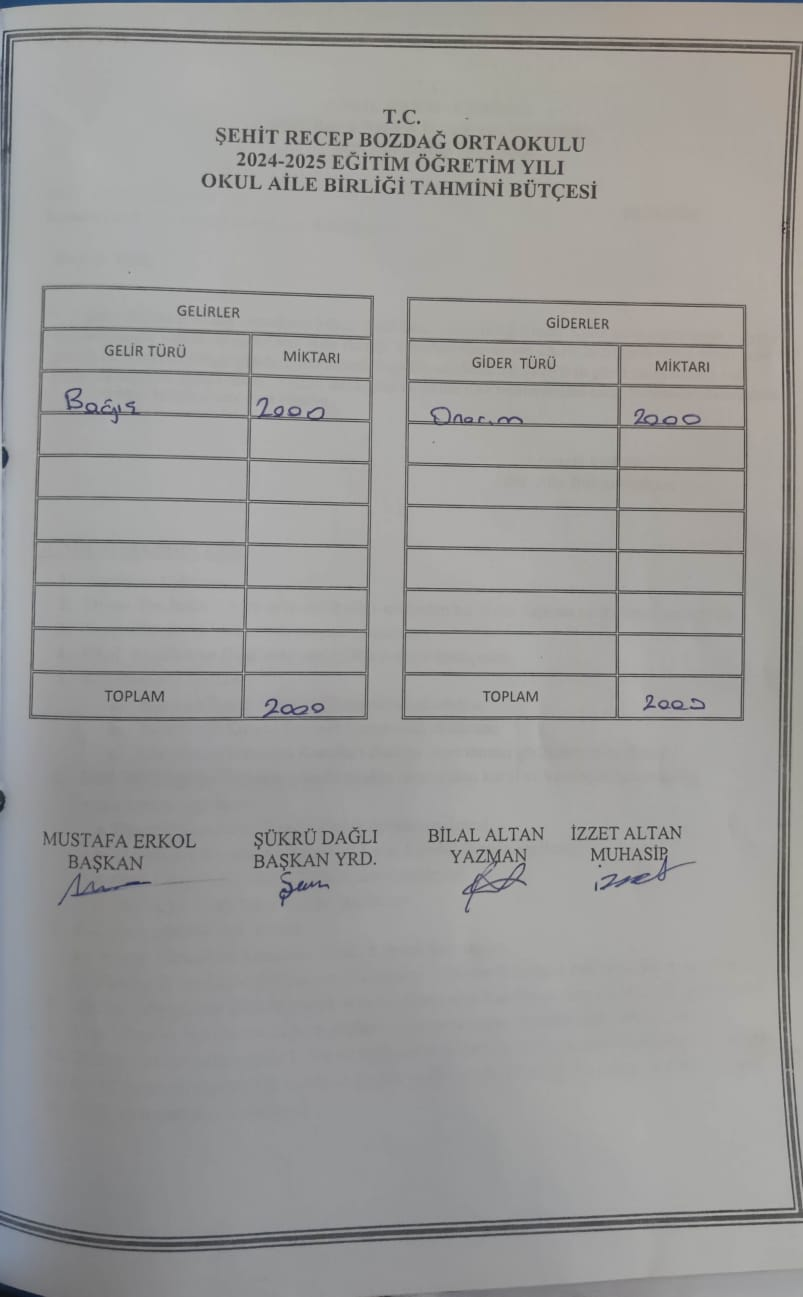 T.C.
ŞEHİT RECEP BOZDAĞ ORTAOKULU
2024-2025 EĞİTİM ÖĞRETİM YILI
OKUL AİLE BİRLİĞİ TAHMİNİ BÜTÇESİ
GELİRLER
GELİR TÜRÜ MİKTARI
Bağış 2000
TOPLAM 2000
GİDERLER
GİDER TÜRÜ MİKTARI
Onarım 2000
TOPLAM 2000
MUSTAFA ERKOL ŞÜKRÜ DAĞLI BİLAL ALTAN İZZET ALTAN
BAŞKAN BAŞKAN YRD. YAZMAN MUHASİP
izzet